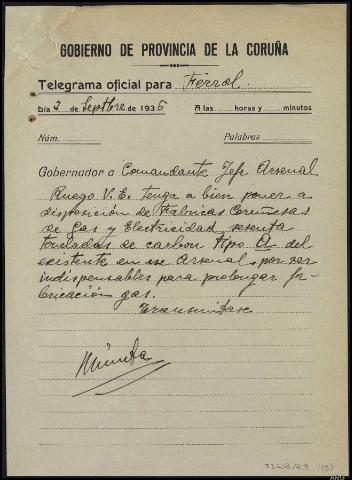 GOBIERNO DE PROVINCIA DE LA CORUÑA
Telegrama oficial para Ferrol
Día 2 de Septbre de 1936 A las horas y minutos
Núm. Palabras
Gobernador a Comandante Jefe Arsenal
Ruego V. E. tenga a bien poner a
disposición de Fabricas Coruñesas
de Gas y Electricidad sesenta
toneladas de carbon tipo A del
existente en ese Arsenal, por ser
indispensables para prolongar fa-
bricación gas.
Transmitase